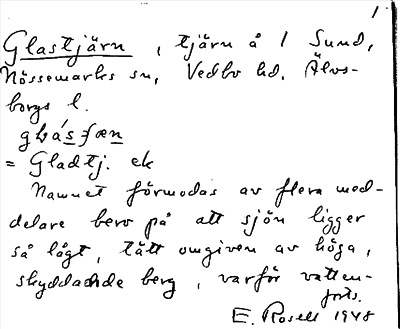 1
Glastjärn, tjärn å 1 Sund,
Nössemarks sn, Vedbo hd. Älvs-
borgs l.
= Gladtj. ek
Namnet förmodas av flera med-
delare bero på att sjön ligger
så lågt, tätt omgiven av höga,
skyddande berg, varför vatten-
forts.
E. Rosell 1948